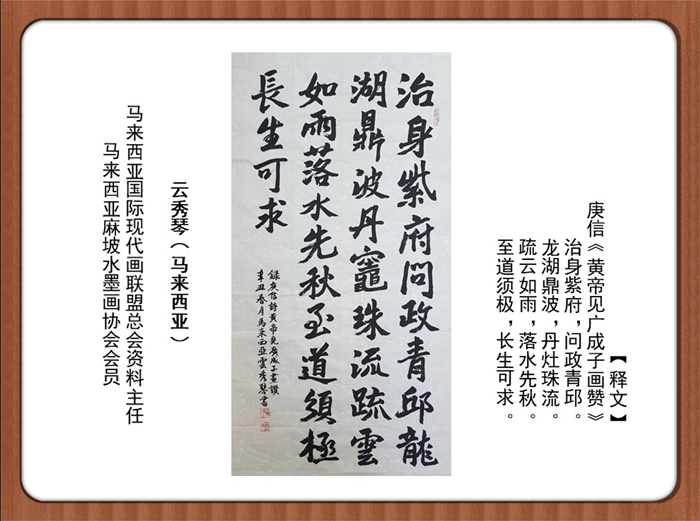 【释文】
庾信《黄帝见广成子画赞》
治身紫府，问政青邱。
龙湖鼎波，丹灶珠流。
疏云如雨，落水先秋。
至道须极，长生可求。
治身紫府問政青邱龍
湖鼎波丹竈珠流疏雲
如雨落水先秋至道須極
長生可求
錄庾信詩黃帝見廣成子畫讚
辛丑春月馬來西亞雲秀琴書
云秀琴（马来西亚）
马来西亚国际现代画联盟总会资料主任
马来西亚麻坡水墨画协会会员